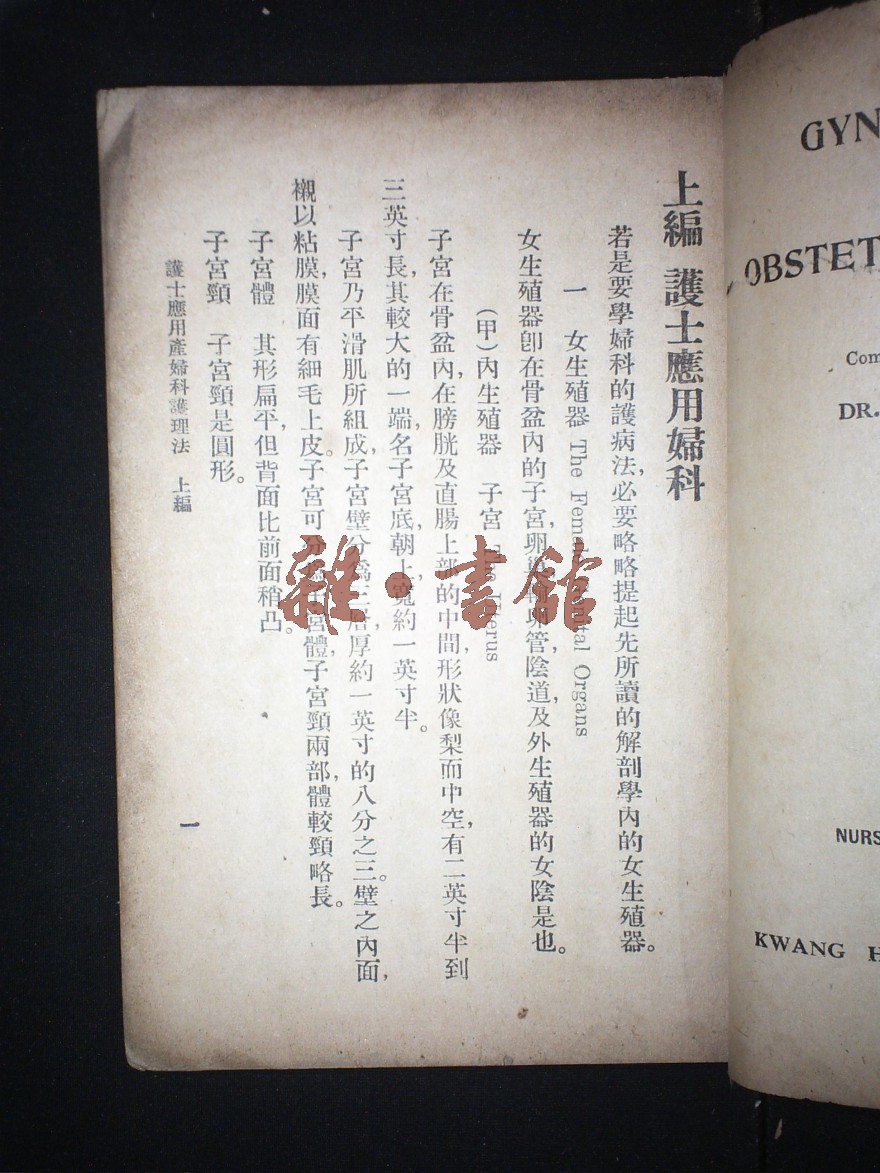 上編 護士應用婦科
若是要學婦科的護病法，必要略略提起先所讀的解剖學內的女生殖器。
一 女生殖器 The Fem Organs
女生殖器卽在骨盆內的子宮，卵 管，陰道，及外生殖器的女陰是也。
(甲)內生殖器 子宮 Uterus
子宮在骨盆內，在膀胱及直腸上部的中間，形狀像梨而中空，有二英寸半到
三英寸長，其較大的一端，名子宮底，朝上，寬約一英寸半。
子宮乃平滑肌所組成，子宮壁分爲三層，厚約一英寸的八分之三。壁之內面，
襯以粘膜，膜面有細毛上皮。子宮可 宮體，子宮頸兩部，體較頸略長。
子宮體 其形扁平，但背面比前面稍凸。
子宮頸 子宮頸是圓形。
護士應用產婦科護理法 上編
一
雜·書館
GYN
OBSTET
Com
DR.
NURS
KWANG H